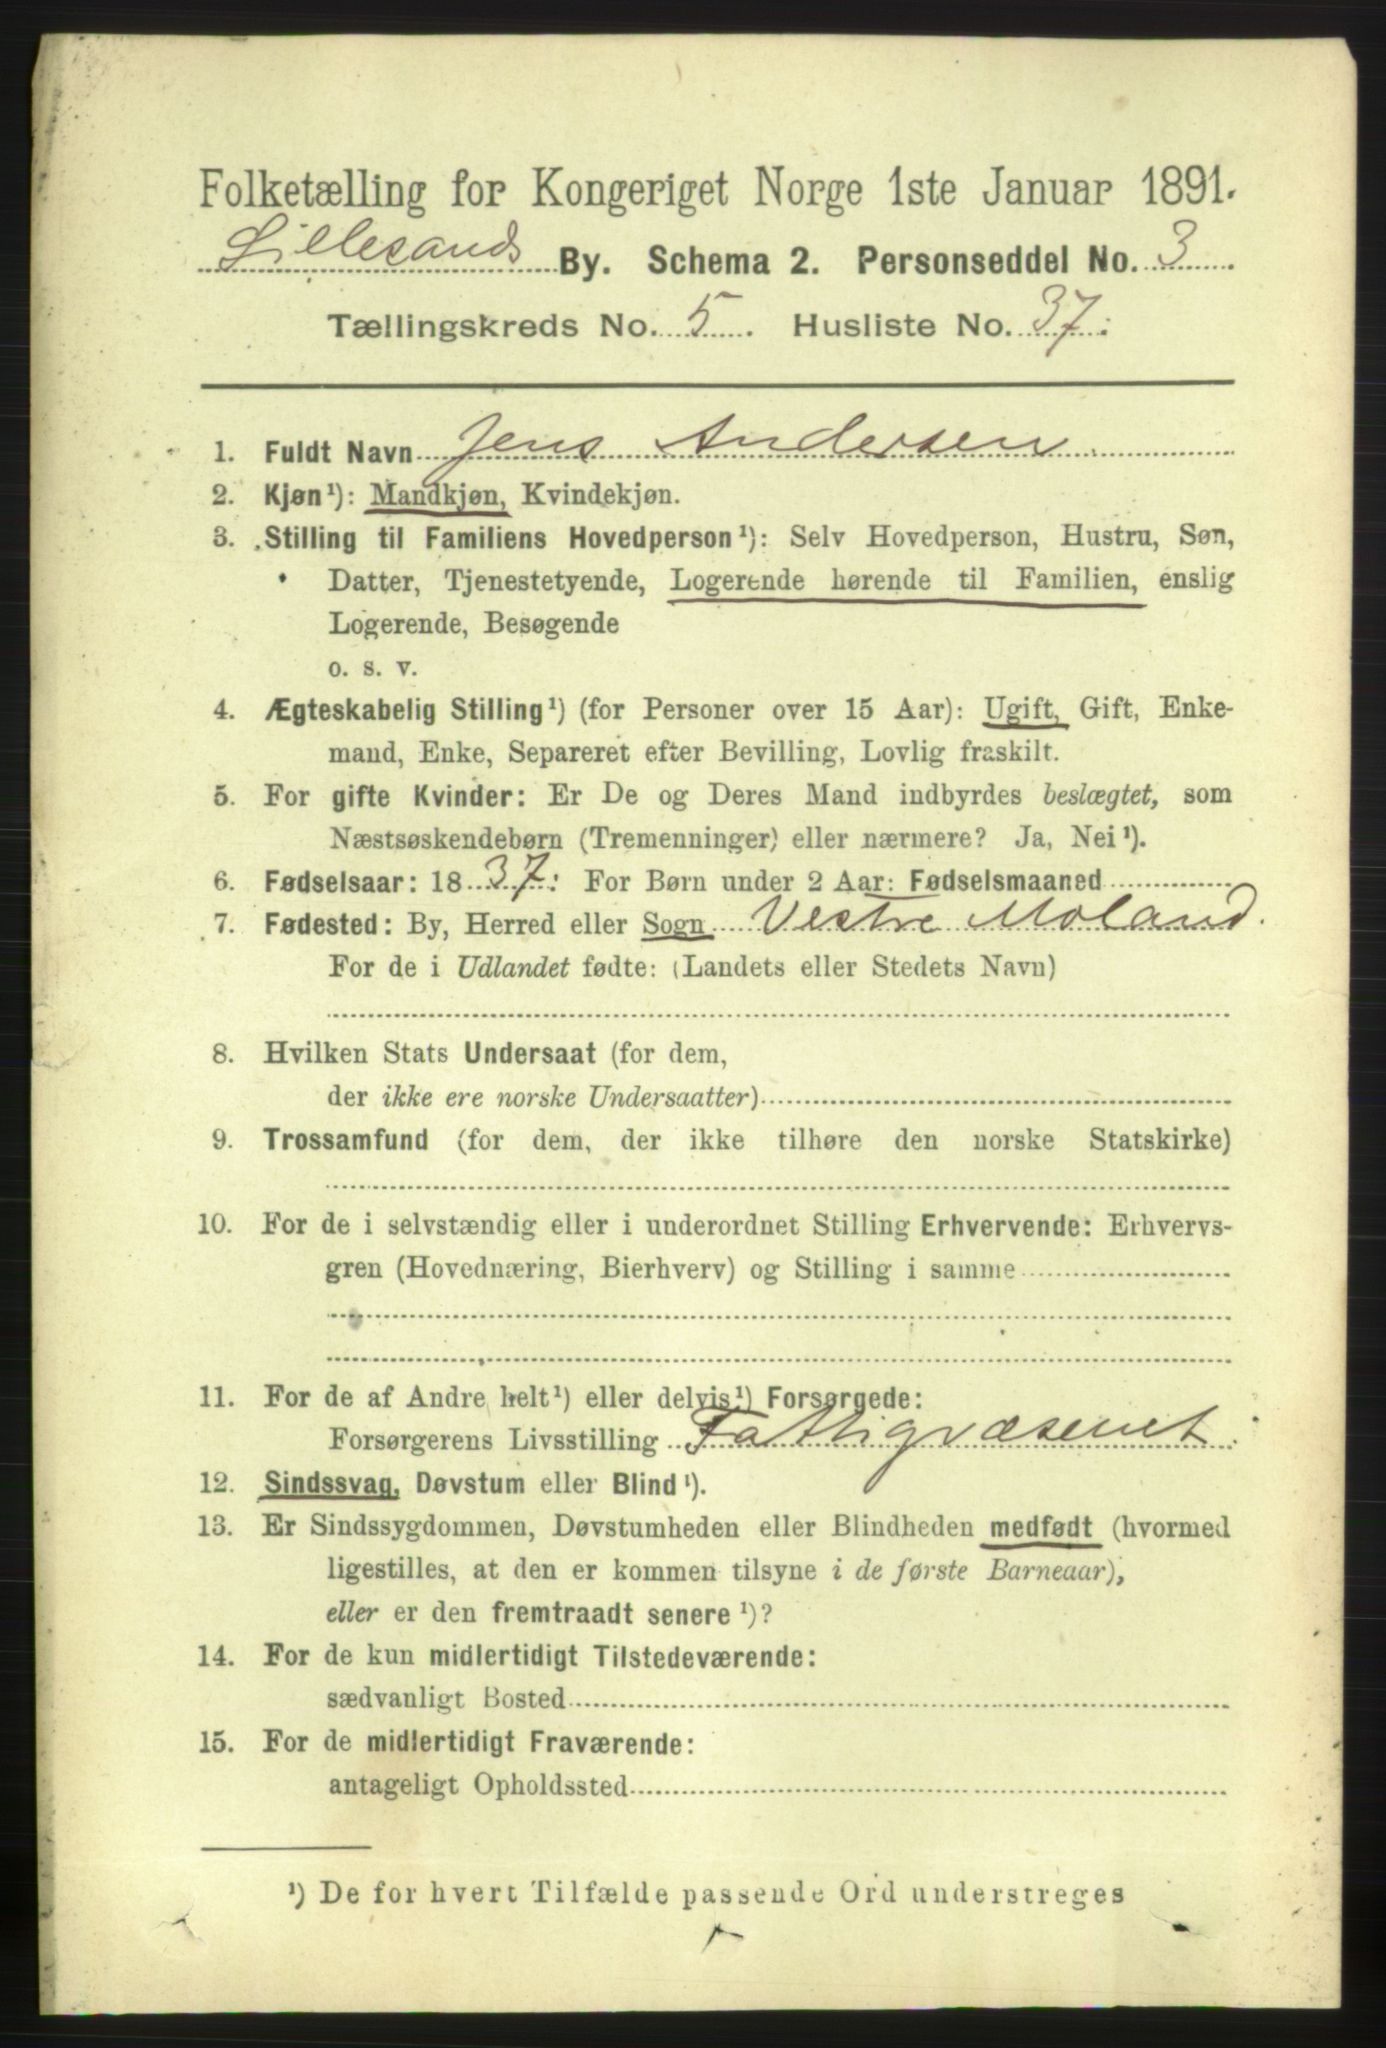 Folketælling for Kongeriget Norge 1ste Januar 1891.
Lillesands By. Schema 2. Personseddel No. 3
Tællingskreds No. 5. Husliste No. 37.
1. Fuldt Navn Jens Andersen
2. Kjøn¹): Mandkjøn, Kvindekjøn.
3. Stilling til Familiens Hovedperson¹): Selv Hovedperson, Hustru, Søn,
Datter, Tjenestetyende, Logerende hørende til Familien, enslig
Logerende, Besøgende
o. s. v.
4. Ægteskabelig Stilling¹) (for Personer over 15 Aar): Ugift, Gift, Enke-
mand, Enke, Separeret efter Bevilling, Lovlig fraskilt.
5. For gifte Kvinder: Er De og Deres Mand indbyrdes beslægtet, som
Næstsøskendebørn (Tremenninger) eller nærmere? Ja, Nei¹).
6. Fødselsaar: 1837. For Børn under 2 Aar: Fødselsmaaned
7. Fødested: By, Herred eller Sogn Vestre Moland.
For de i Udlandet fødte: (Landets eller Stedets Navn)
8. Hvilken Stats Undersaat (for dem,
der ikke ere norske Undersaatter)
9. Trossamfund (for dem, der ikke tilhøre den norske Statskirke)
10. For de i selvstændig eller i underordnet Stilling Erhvervende: Erhvervs-
gren (Hovednæring, Bierhverv) og Stilling i samme
11. For de af Andre helt¹) eller delvis¹) Forsørgede:
Forsørgerens Livsstilling Fattigvæsenet.
12. Sindssvag, Døvstum eller Blind¹).
13. Er Sindssygdommen, Døvstumheden eller Blindheden medfødt (hvormed
ligestilles, at den er kommen tilsyne i de første Barneaar),
eller er den fremtraadt senere¹)?
14. For de kun midlertidigt Tilstedeværende:
sædvanligt Bosted
15. For de midlertidigt Fraværende:
antageligt Opholdssted
¹) De for hvert Tilfælde passende Ord understreges